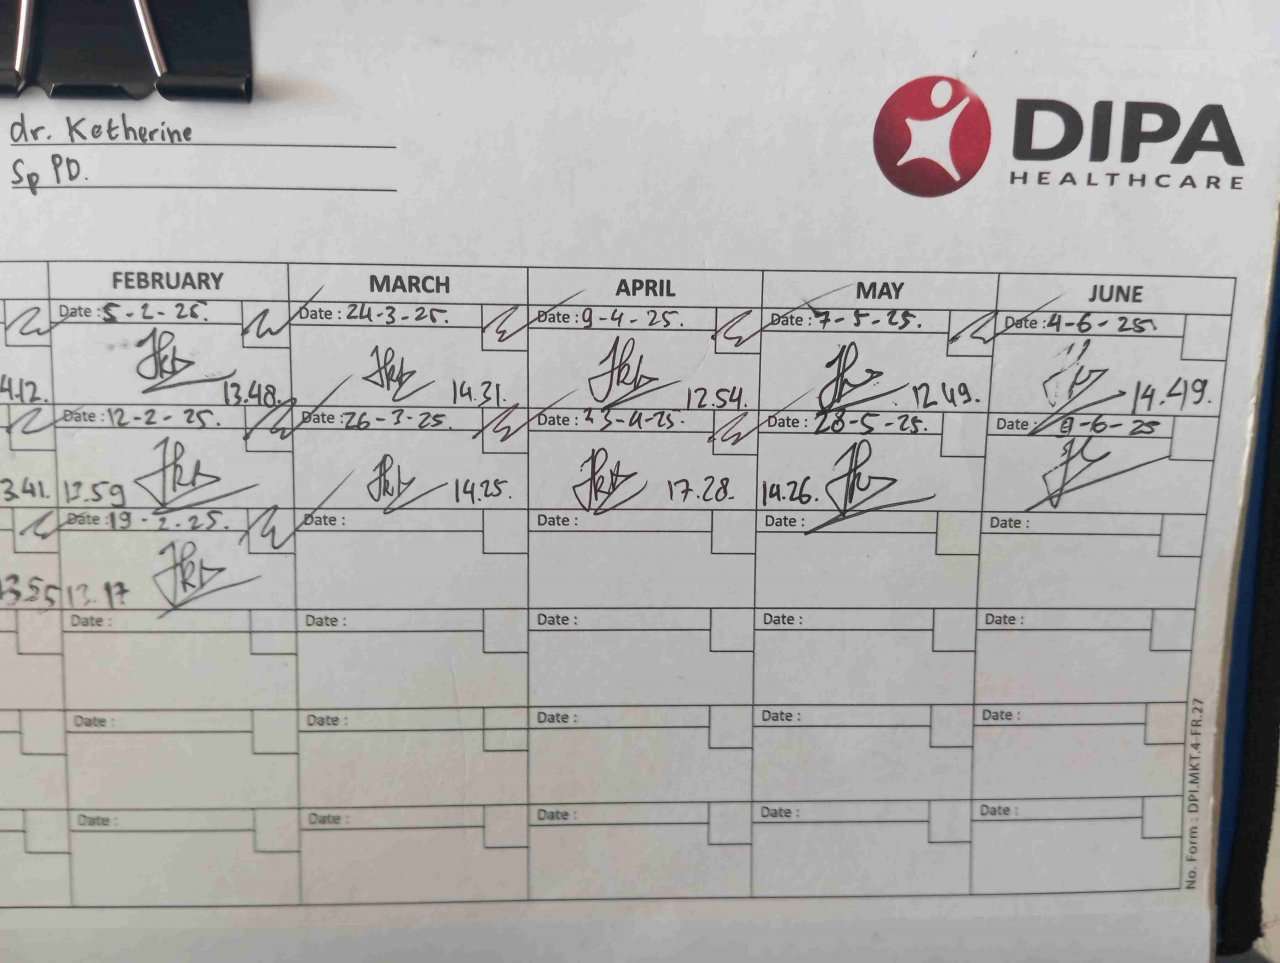 dr. Katherine
Sp PD.
DIPA
HEALTHCARE
FEBRUARY MARCH APRIL MAY JUNE
Date : 5-2-25. Date : 24-3-25. Date : 9-4-25. Date : 7-5-25. Date : 4-6-25.
412. 13.48. 14.31. 12.54. 12.49. 14.49.
Date : 12-2-25. Date : 26-3-25. Date : 23-4-25. Date : 28-5-25. Date : 9-6-25
3.41. 13.59 14.25. 17.28. 14.26.
Date : 19-2-25. Date : Date : Date : Date :
3.55 13.17
Date : Date : Date : Date : Date :
Date : Date : Date : Date : Date :
Date : Date : Date : Date : Date :
No. Form : DPI.MKT.4-FR.27